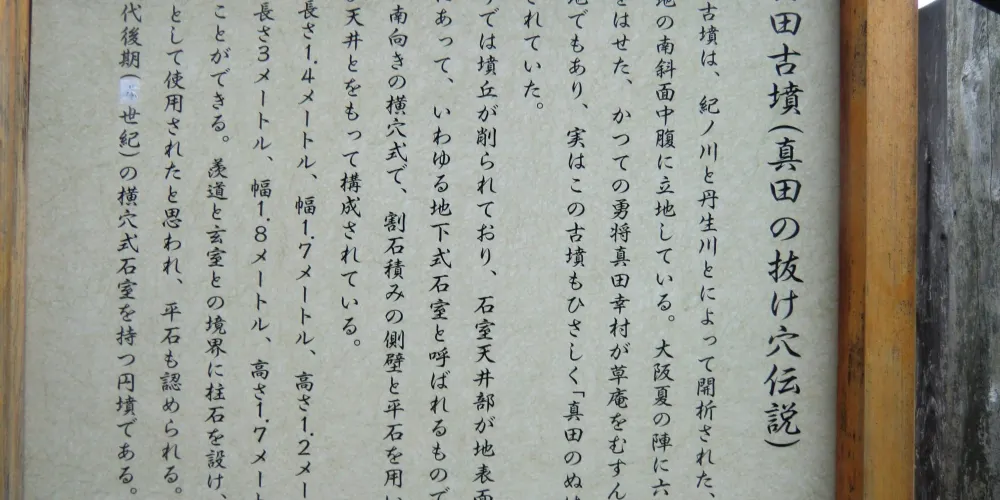 田古墳(真田の抜け穴伝説)
古墳は、紀ノ川と丹生川とによって開折された、
地の南斜面中腹に立地している。大阪夏の陣に六
をはせた、かつての勇将真田幸村が草庵をむすん
地でもあり、実はこの古墳もひさしく「真田のぬけ
されていた。
では墳丘が削られており、石室天井部が地表面
にあって、いわゆる地下式石室と呼ばれるもので
南向きの横穴式で、割石積みの側壁と平石を用い
天井とをもって構成されている。
長さ1.4メートル、幅1.7メートル、高さ1.2メー
長さ3メートル、幅1.8メートル、高さ1.7メート
ことができる。羨道と玄室との境界に柱石を設け、
として使用されたと思われ、平石も認められる。
代後期(世紀)の横穴式石室を持つ円墳である。